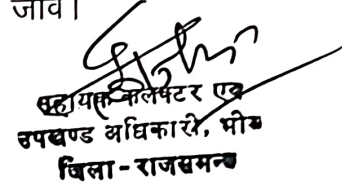 जावे।
सहायक कलेक्टर एवं
उपखण्ड अधिकारी, भीम
जिला - राजसमन्द